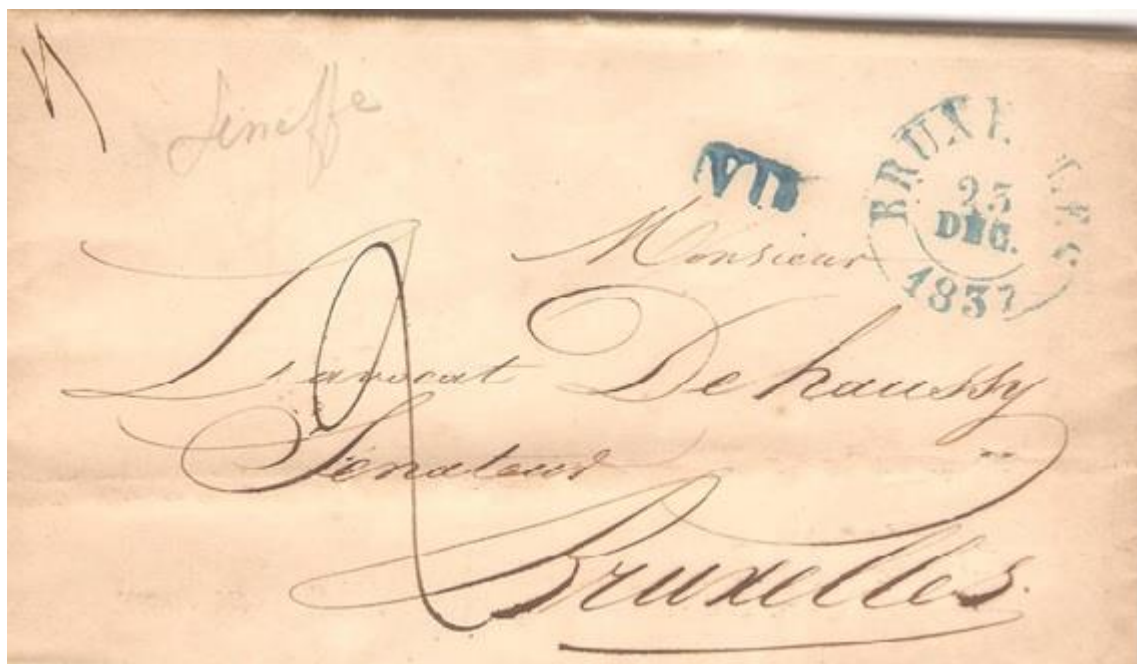 Seneffe
BRUXELLES
23
DEC.
1837
Monsieur
L'avocat Dehaussy
Sénateur
Bruxelles.